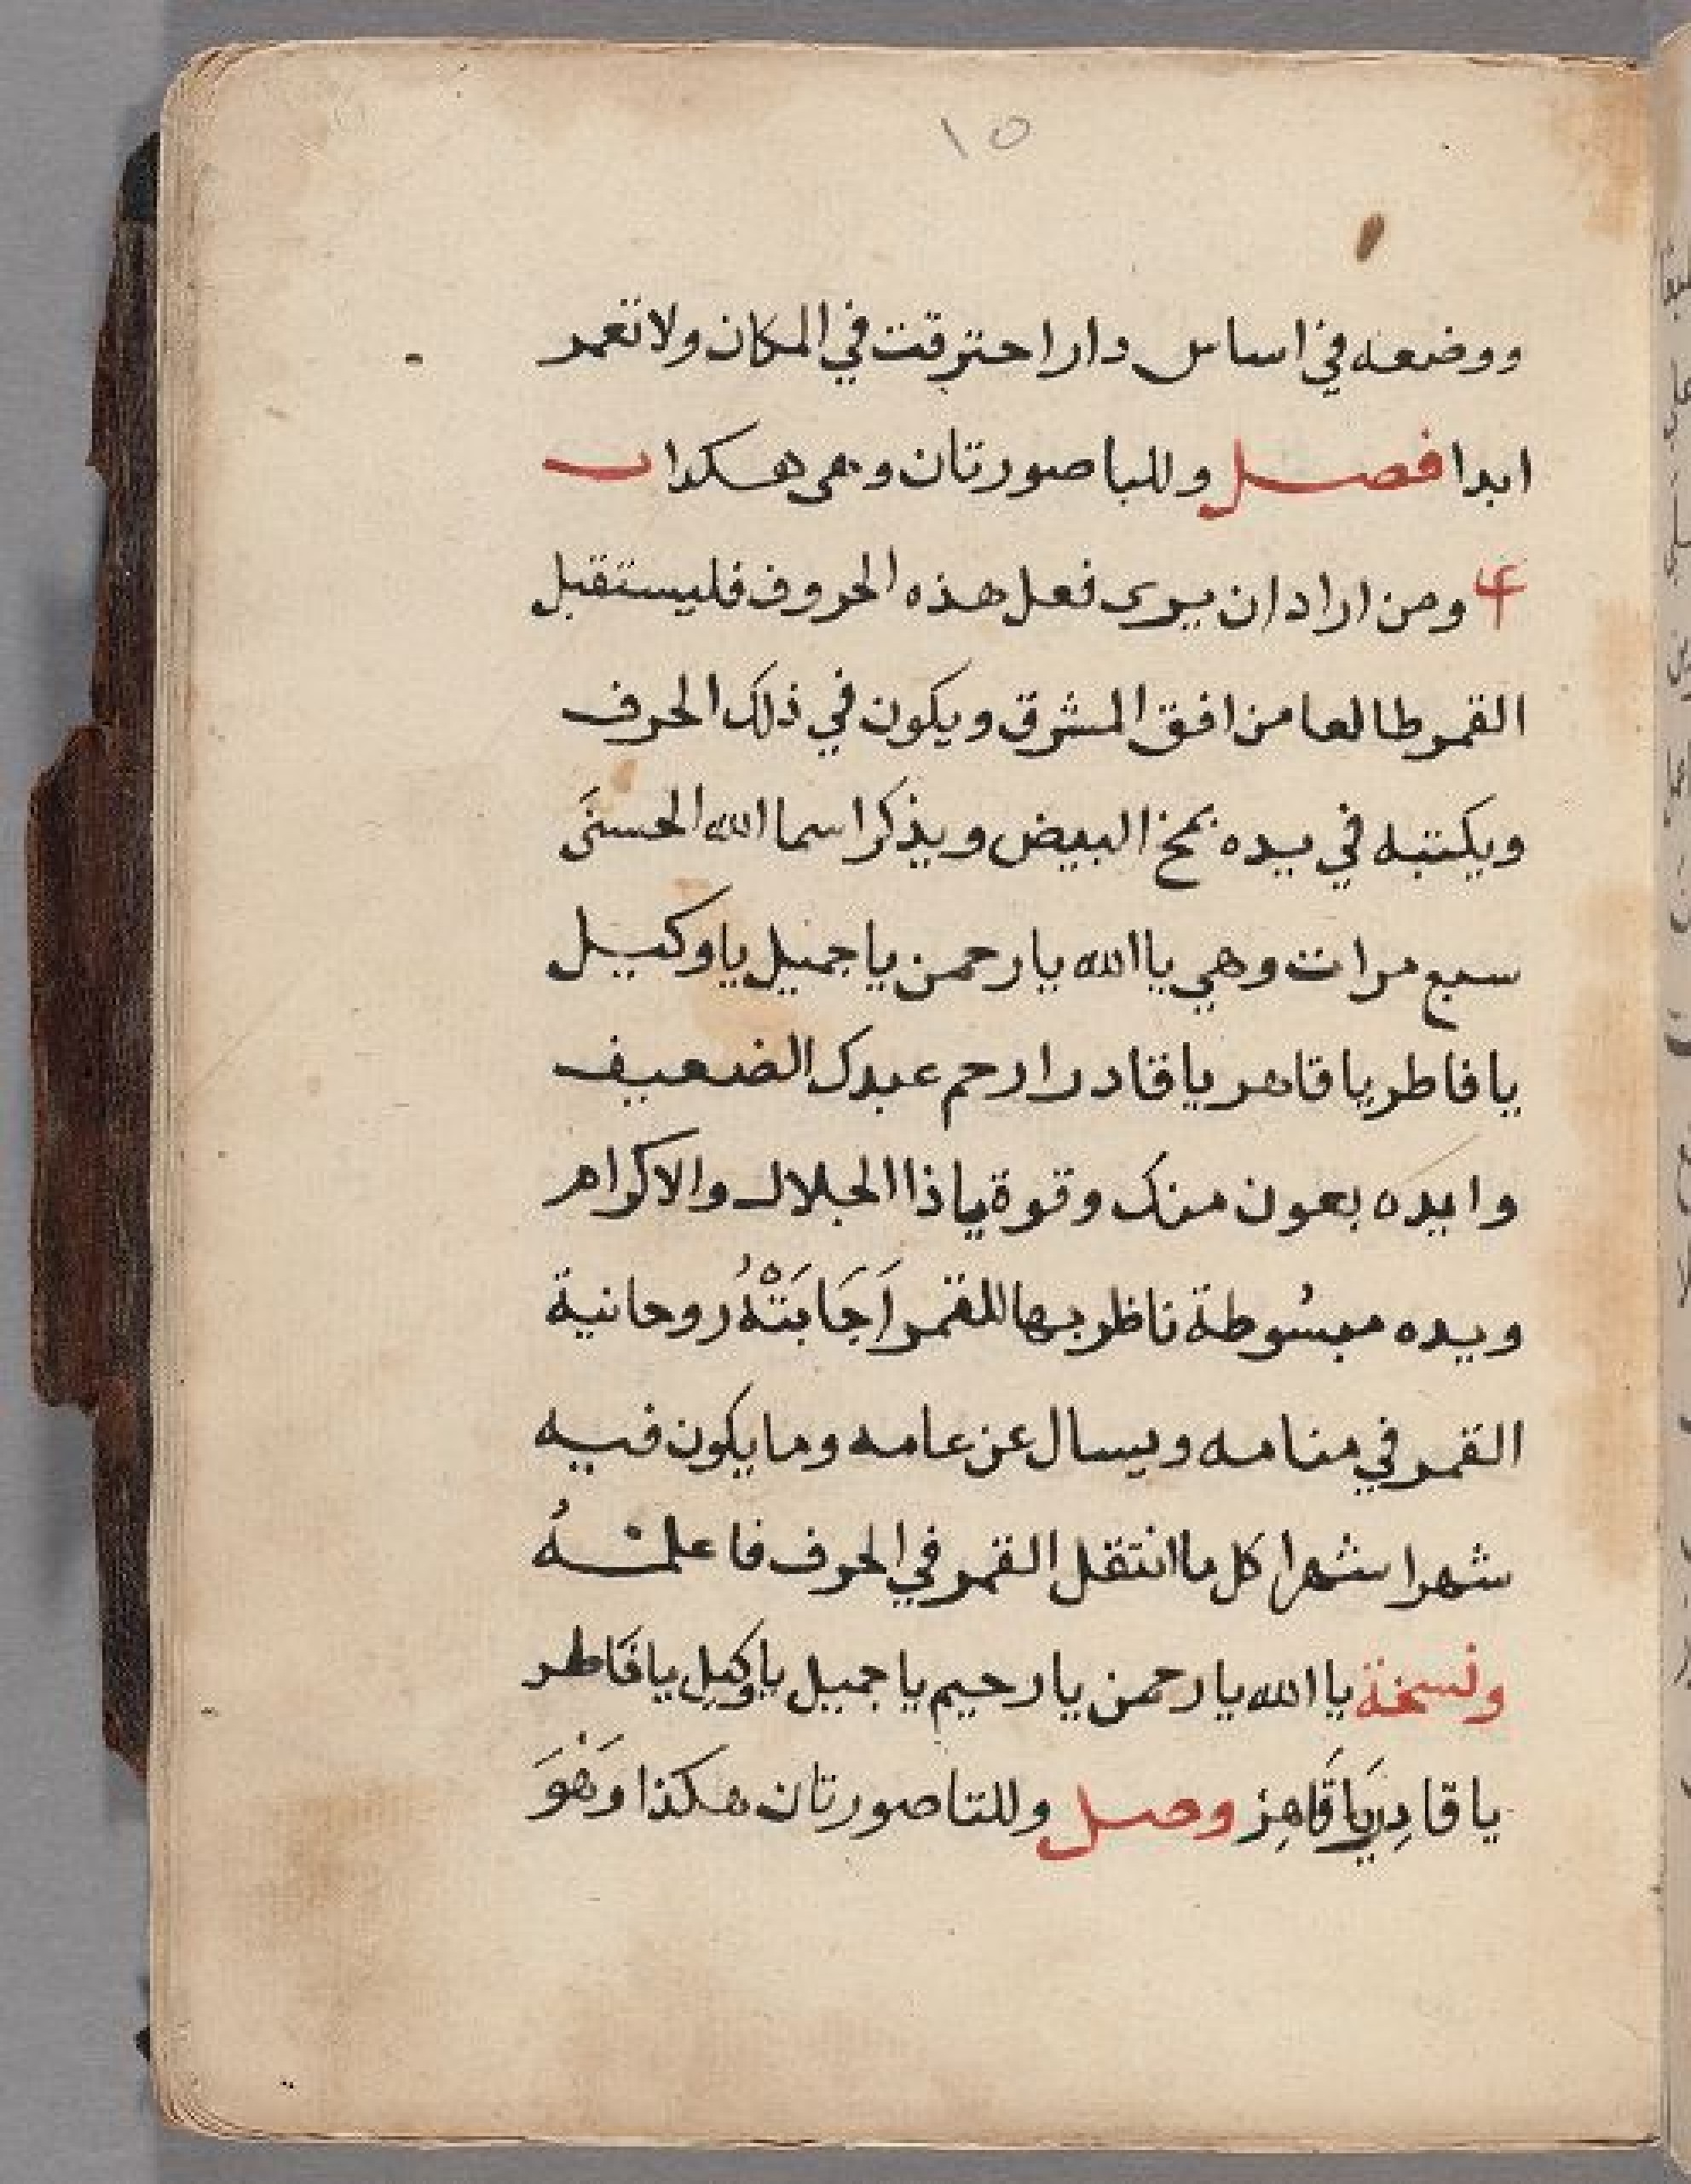 ١٥
ووضعه في اساس دار احترقت في المكان ولا تعمر
ابدا فصل وللبا صورتان وهى هكدا ٮ
ومن اراد ان يرى فعل هذه الحروف فليستقبل
القمر طالعا من افق المشرق ويكون في ذلك الحرف
ويكتبه في يده بمخ البيض ويذكر اسما الله الحسنَى
سبع مرات وهي يا الله يا رحمن يا جميل يا وكيل
يا فاطر يا قاهر يا قادر ارحم عبدك الضعيف
وايده بعون منك وقوة يا ذا الجلال والاكرام
ويده مبسُوطة ناظر بها للقمر اَجَابَتْهُ روحانية
القمر في منامه ويسال عن عامه وما يكون فيه
شهرا شهرا كل ما انتقل القمر في الحرف فاعلمْهُ
ونسخة يا الله يا رحمن يا رحيم يا جميل يا وكيل يا فَاطر
يا قادِر يَا قَاهِر وصل وللتا صورتان هكذا وَهْوَ